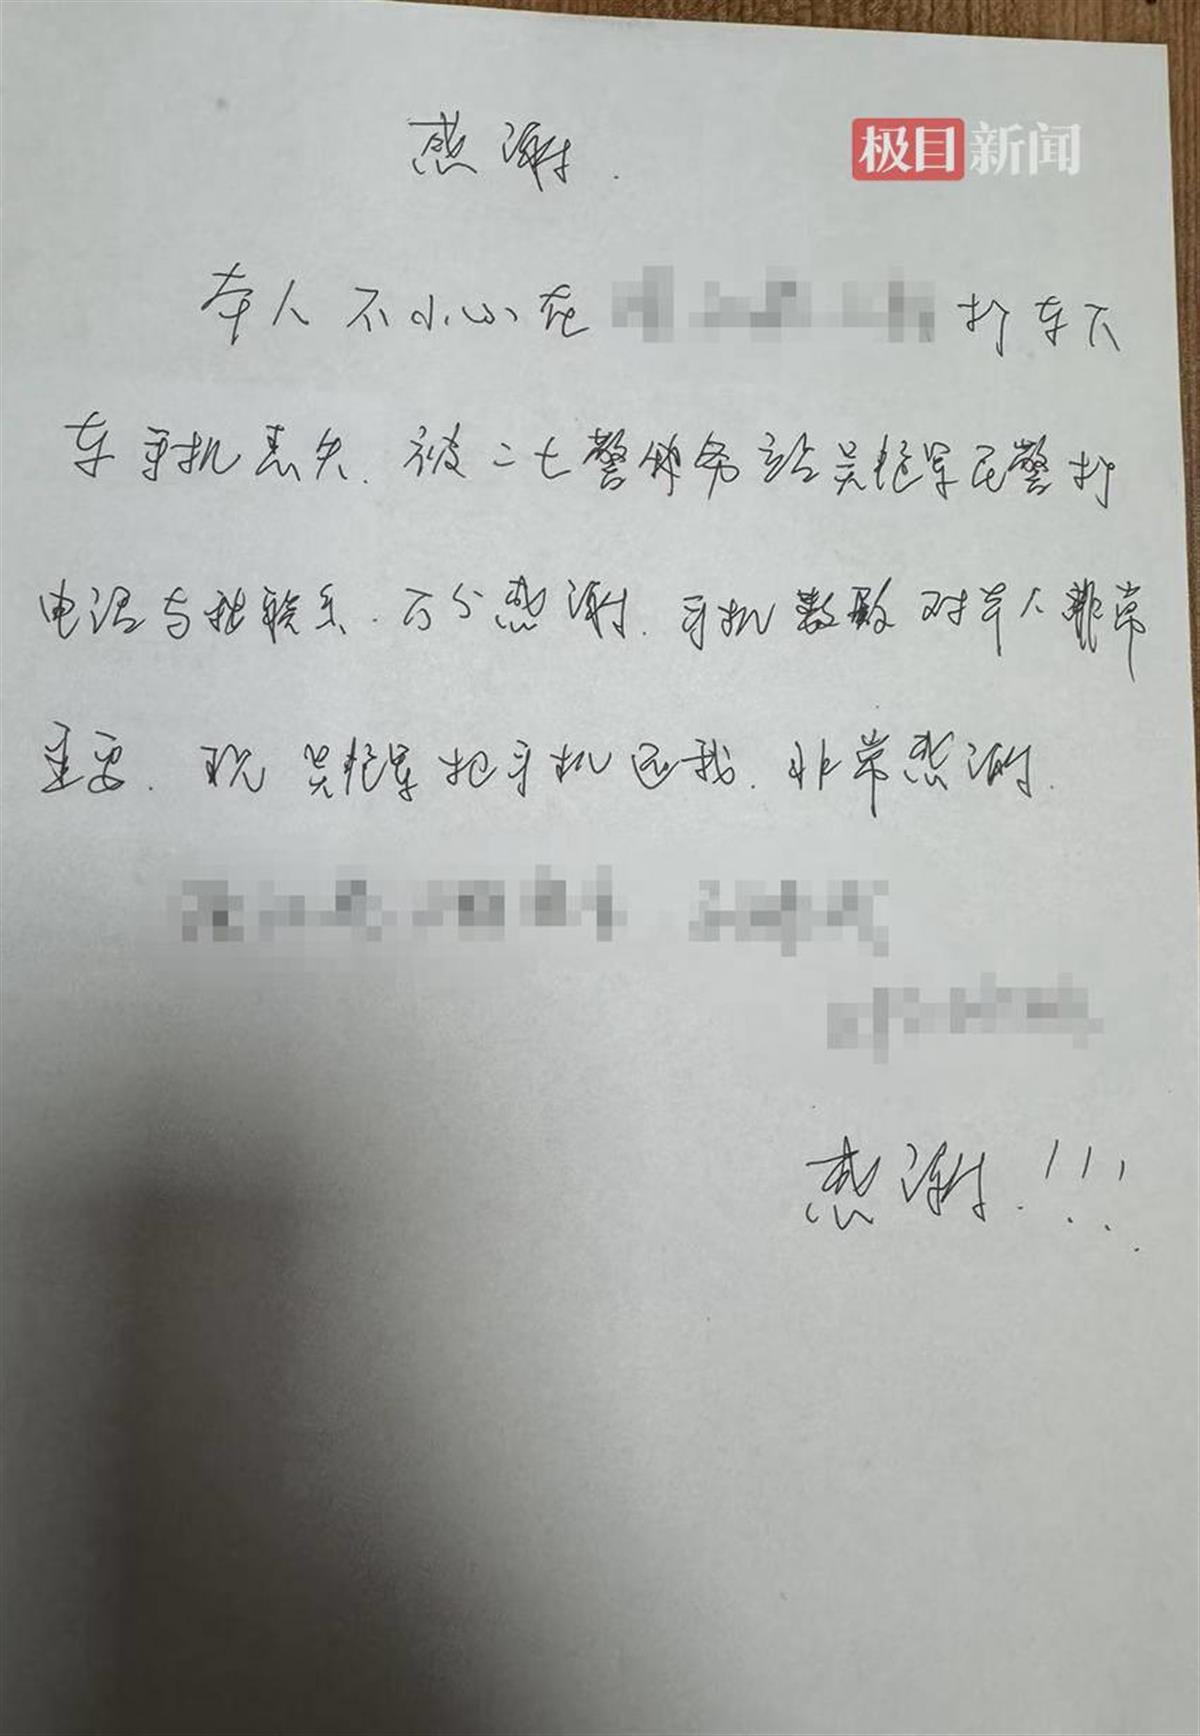 极目新闻
感谢.
本人不小心在 打车下
车手机丢失.被二七警务站吴艳军民警打
电话与我联系.万分感谢.手机数据对本人非常
重要.现吴艳军把手机还我.非常感谢.
感谢.!!!